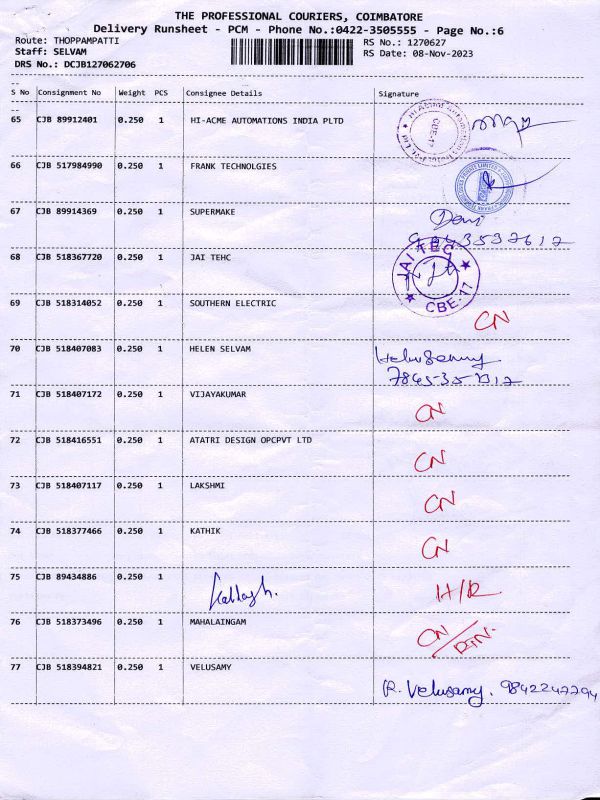 THE PROFESSIONAL COURIERS, COIMBATORE
Delivery Runsheet - PCM - Phone No.:0422-3505555 - Page No.:6
Route: THOPPAMPATTI RS No.: 1270627
Staff: SELVAM RS Date: 08-Nov-2023
DRS No.: DCJB127062706
S No Consignment No Weight PCS Consignee Details Signature
65 CJB 89912401 0.250 1 HI-ACME AUTOMATIONS INDIA PLTD
66 CJB 517984990 0.250 1 FRANK TECHNOLGIES
67 CJB 89914369 0.250 1 SUPERMAKE
68 CJB 518367720 0.250 1 JAI TEHC JAI TEC CBE-17
69 CJB 518314052 0.250 1 SOUTHERN ELECTRIC CN
70 CJB 518407083 0.250 1 HELEN SELVAM
71 CJB 518407172 0.250 1 VIJAYAKUMAR CN
72 CJB 518416551 0.250 1 ATATRI DESIGN OPCPVT LTD CN
73 CJB 518407117 0.250 1 LAKSHMI CN
74 CJB 518377466 0.250 1 KATHIK CN
75 CJB 89434886 0.250 1 H/R
76 CJB 518373496 0.250 1 MAHALAINGAM CN/RTN.
77 CJB 518394821 0.250 1 VELUSAMY
R. Velusamy. 9842247794